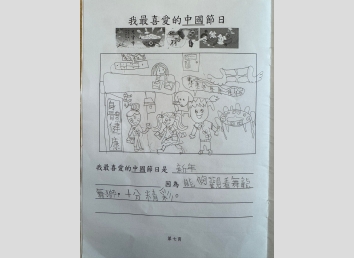 我最喜愛的中國節日
身體健康
我最喜愛的中國節日是 新年
因為 能夠觀看舞龍
舞獅,十分精彩。
第七頁